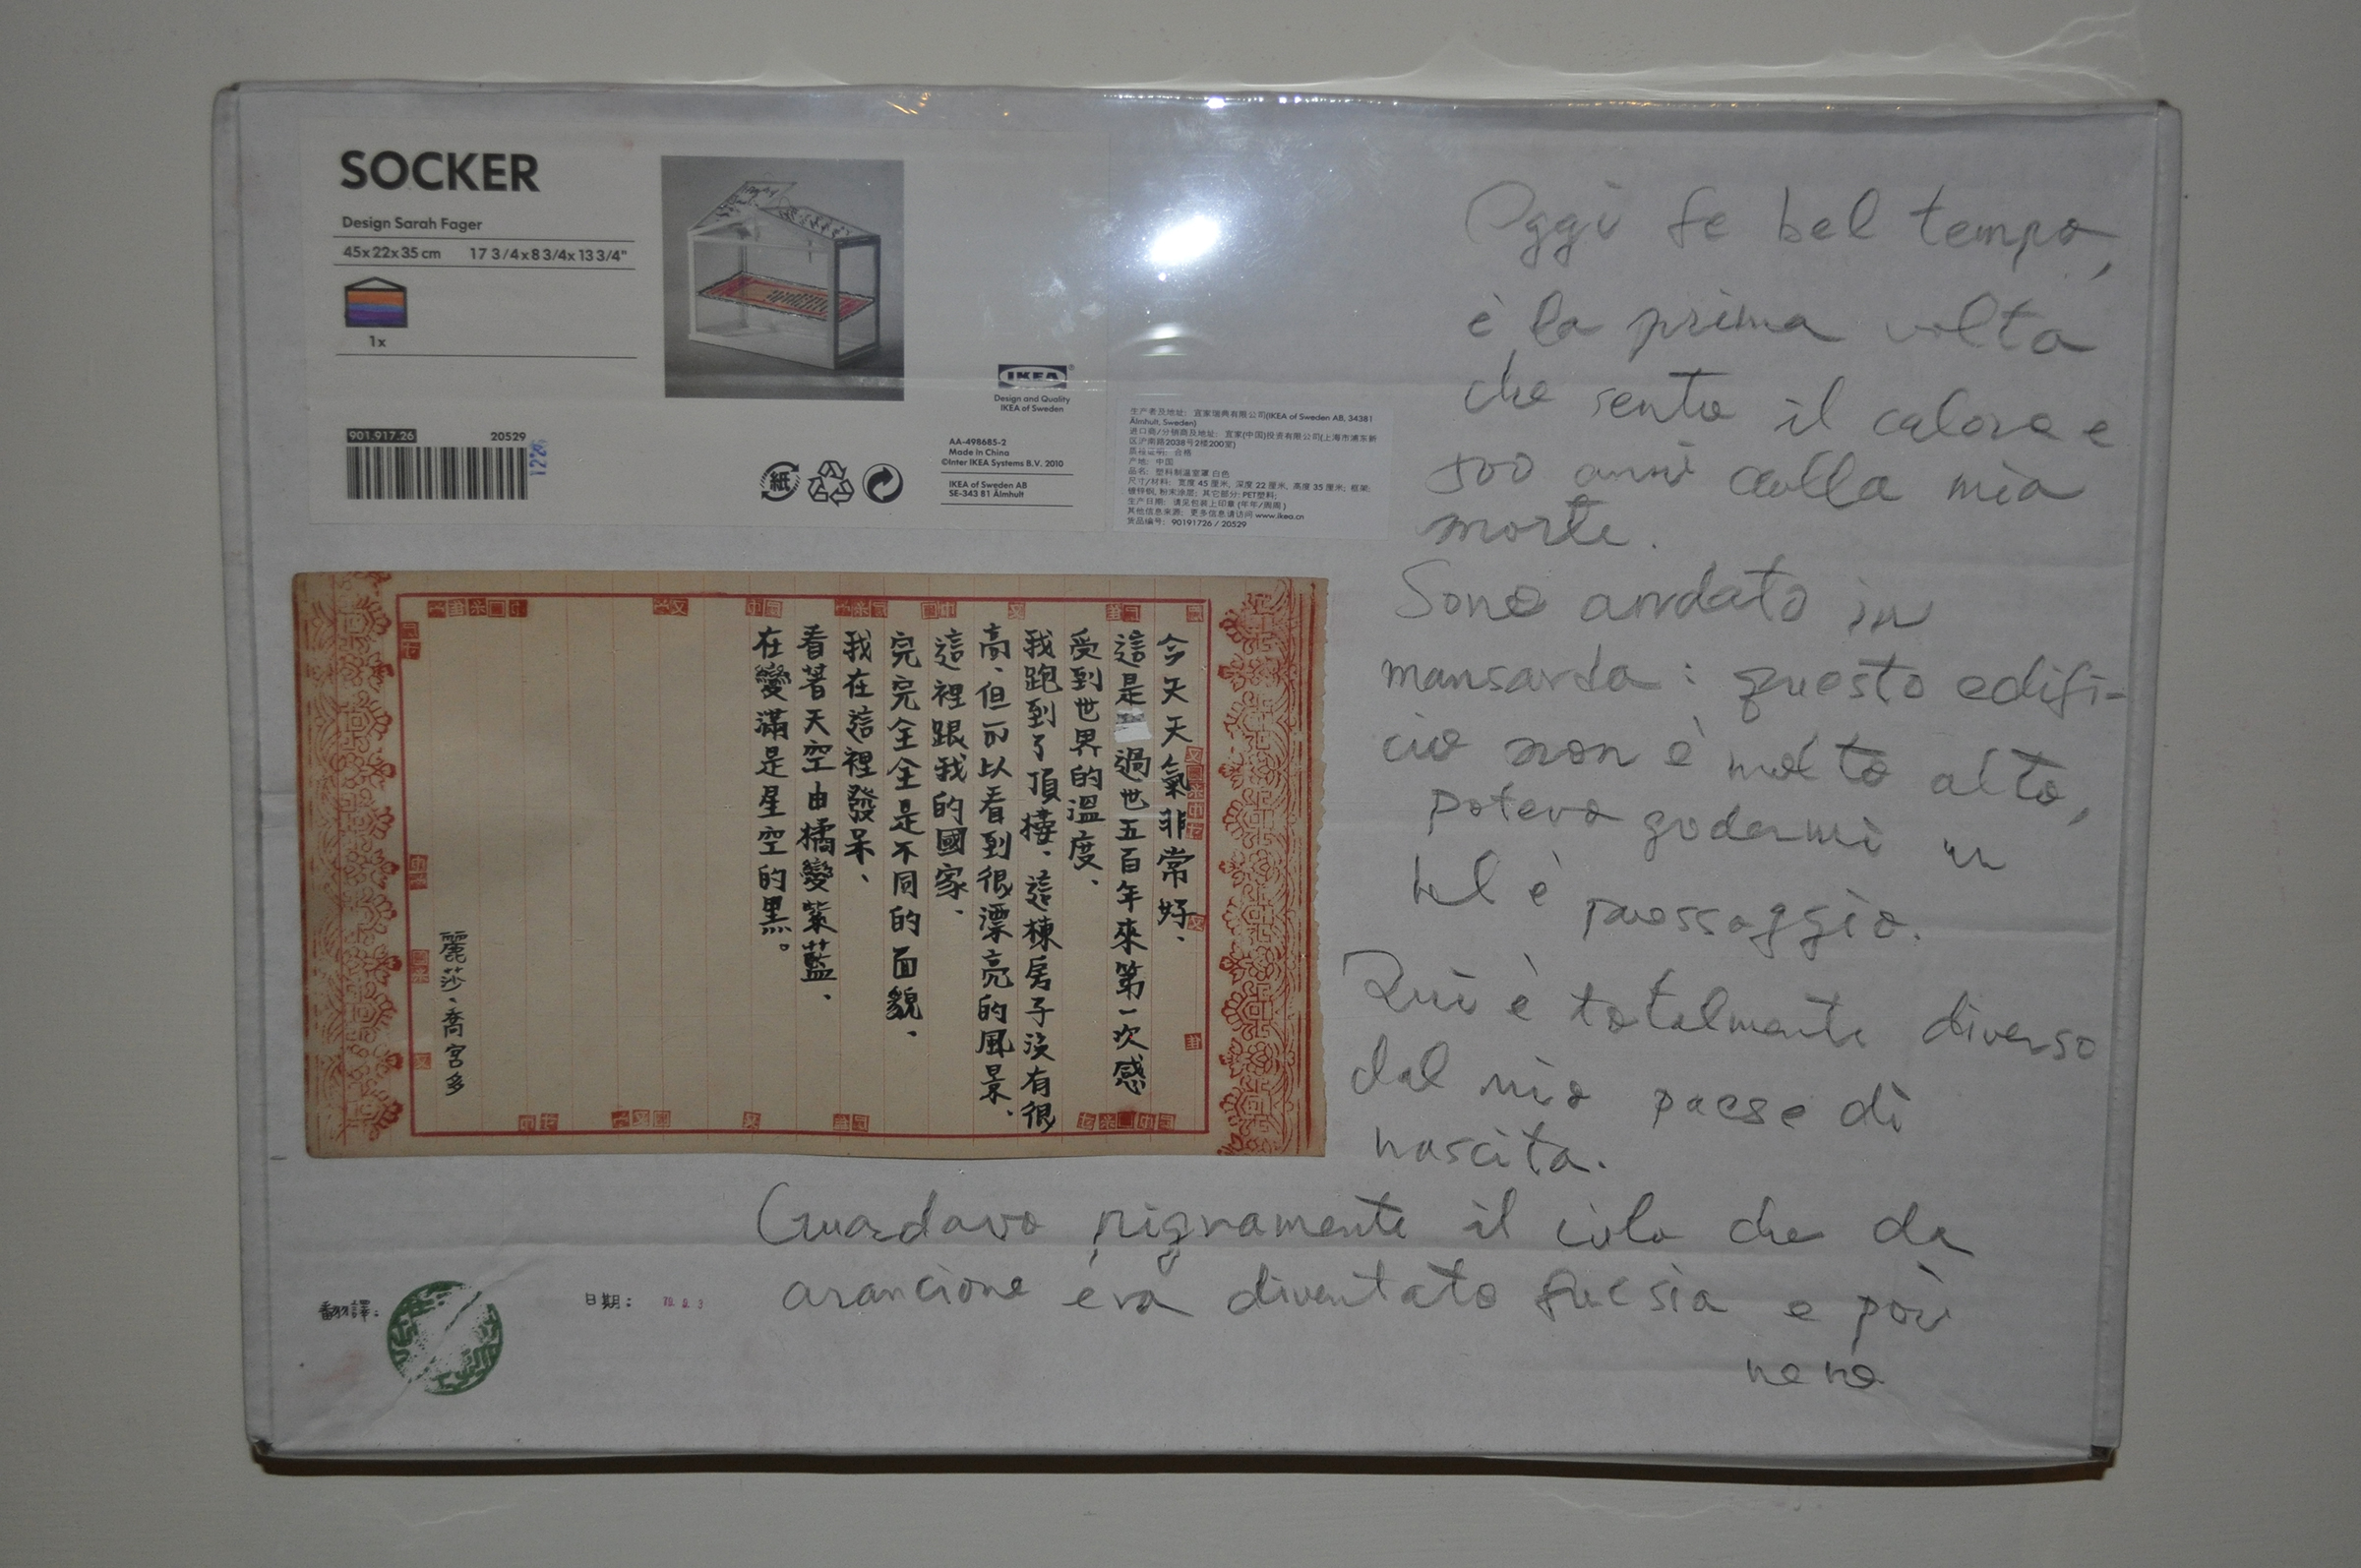 SOCKER
Design Sarah Fager
45x22x35 cm 17 3/4x8 3/4x13 3/4"
1x
901.917.26 20529
1226
IKEA
®
Design and Quality
IKEA of Sweden
紙
AA-498685-2
Made in China
©Inter IKEA Systems B.V. 2010
IKEA of Sweden AB
SE-343 81 Älmhult
生产者及地址: 宜家瑞典有限公司(IKEA of Sweden AB, 34381
Älmhult, Sweden)
进口商/分销商及地址: 宜家(中国)投资有限公司(上海市浦东新
区沪南路2038号2楼200室)
质检证明: 合格
产地: 中国
品名: 塑料制温室罩 白色
尺寸/材料: 宽度 45 厘米, 深度 22 厘米, 高度 35 厘米; 框架:
镀锌钢, 粉末涂层; 其它部分: PET塑料;
生产日期: 请见包装上印章 (年年/周周)
其他信息来源: 更多信息请访问 www.ikea.cn
货品编号: 90191726 / 20529
今天天氣非常好、
這是過世五百年來第一次感
受到世界的溫度、
我跑到了頂樓、這棟房子沒有很
高、但可以看到很漂亮的風景、
這裡跟我的國家、
完完全全是不同的面貌、
我在這裡發呆、
看著天空由橘變紫藍、
在變滿是星空的黑。
麗莎、喬宮多
Oggi fe bel tempo,
è la prima volta
che sento il calore e
500 anni dalla mia
morte.
Sono andato in
mansarda: questo edifi-
cio non è molto alto,
potevo godermi un
bel è paessaggio.
Qui è totalmente diverso
dal mio paese di
nascita.
Guardavo pigramente il cielo che da
arancione era diventato fucsia e poi
nero
翻譯:
日期: